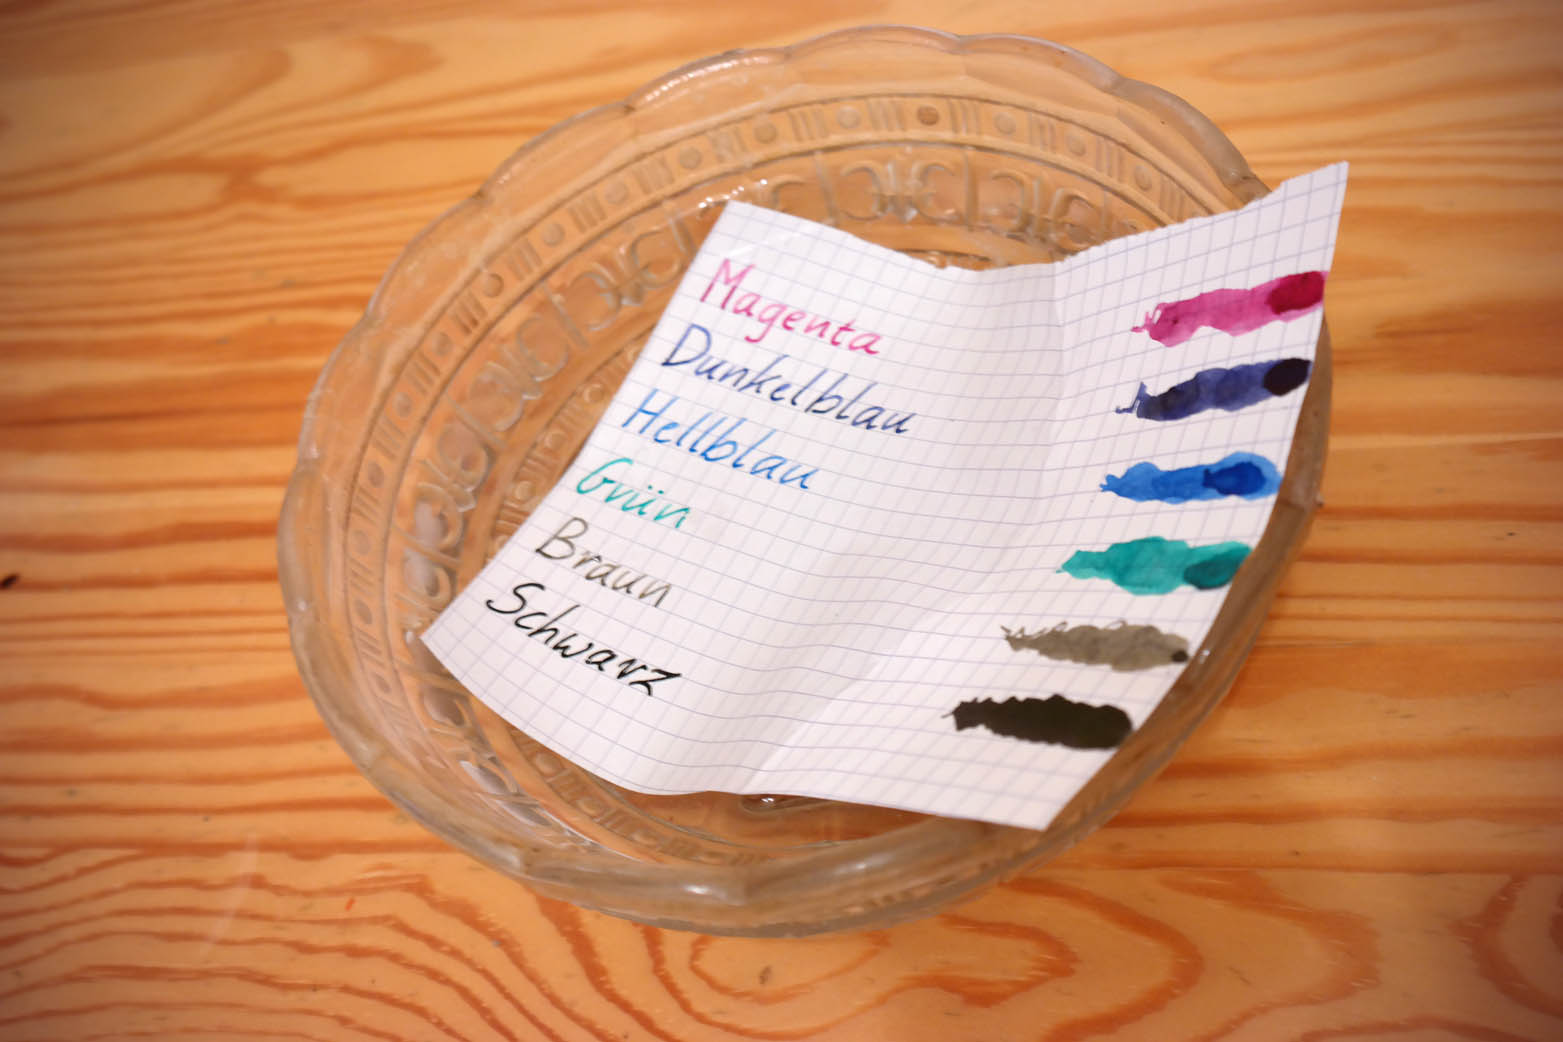 Magenta
Dunkelblau
Hellblau
Grün
Braun
Schwarz